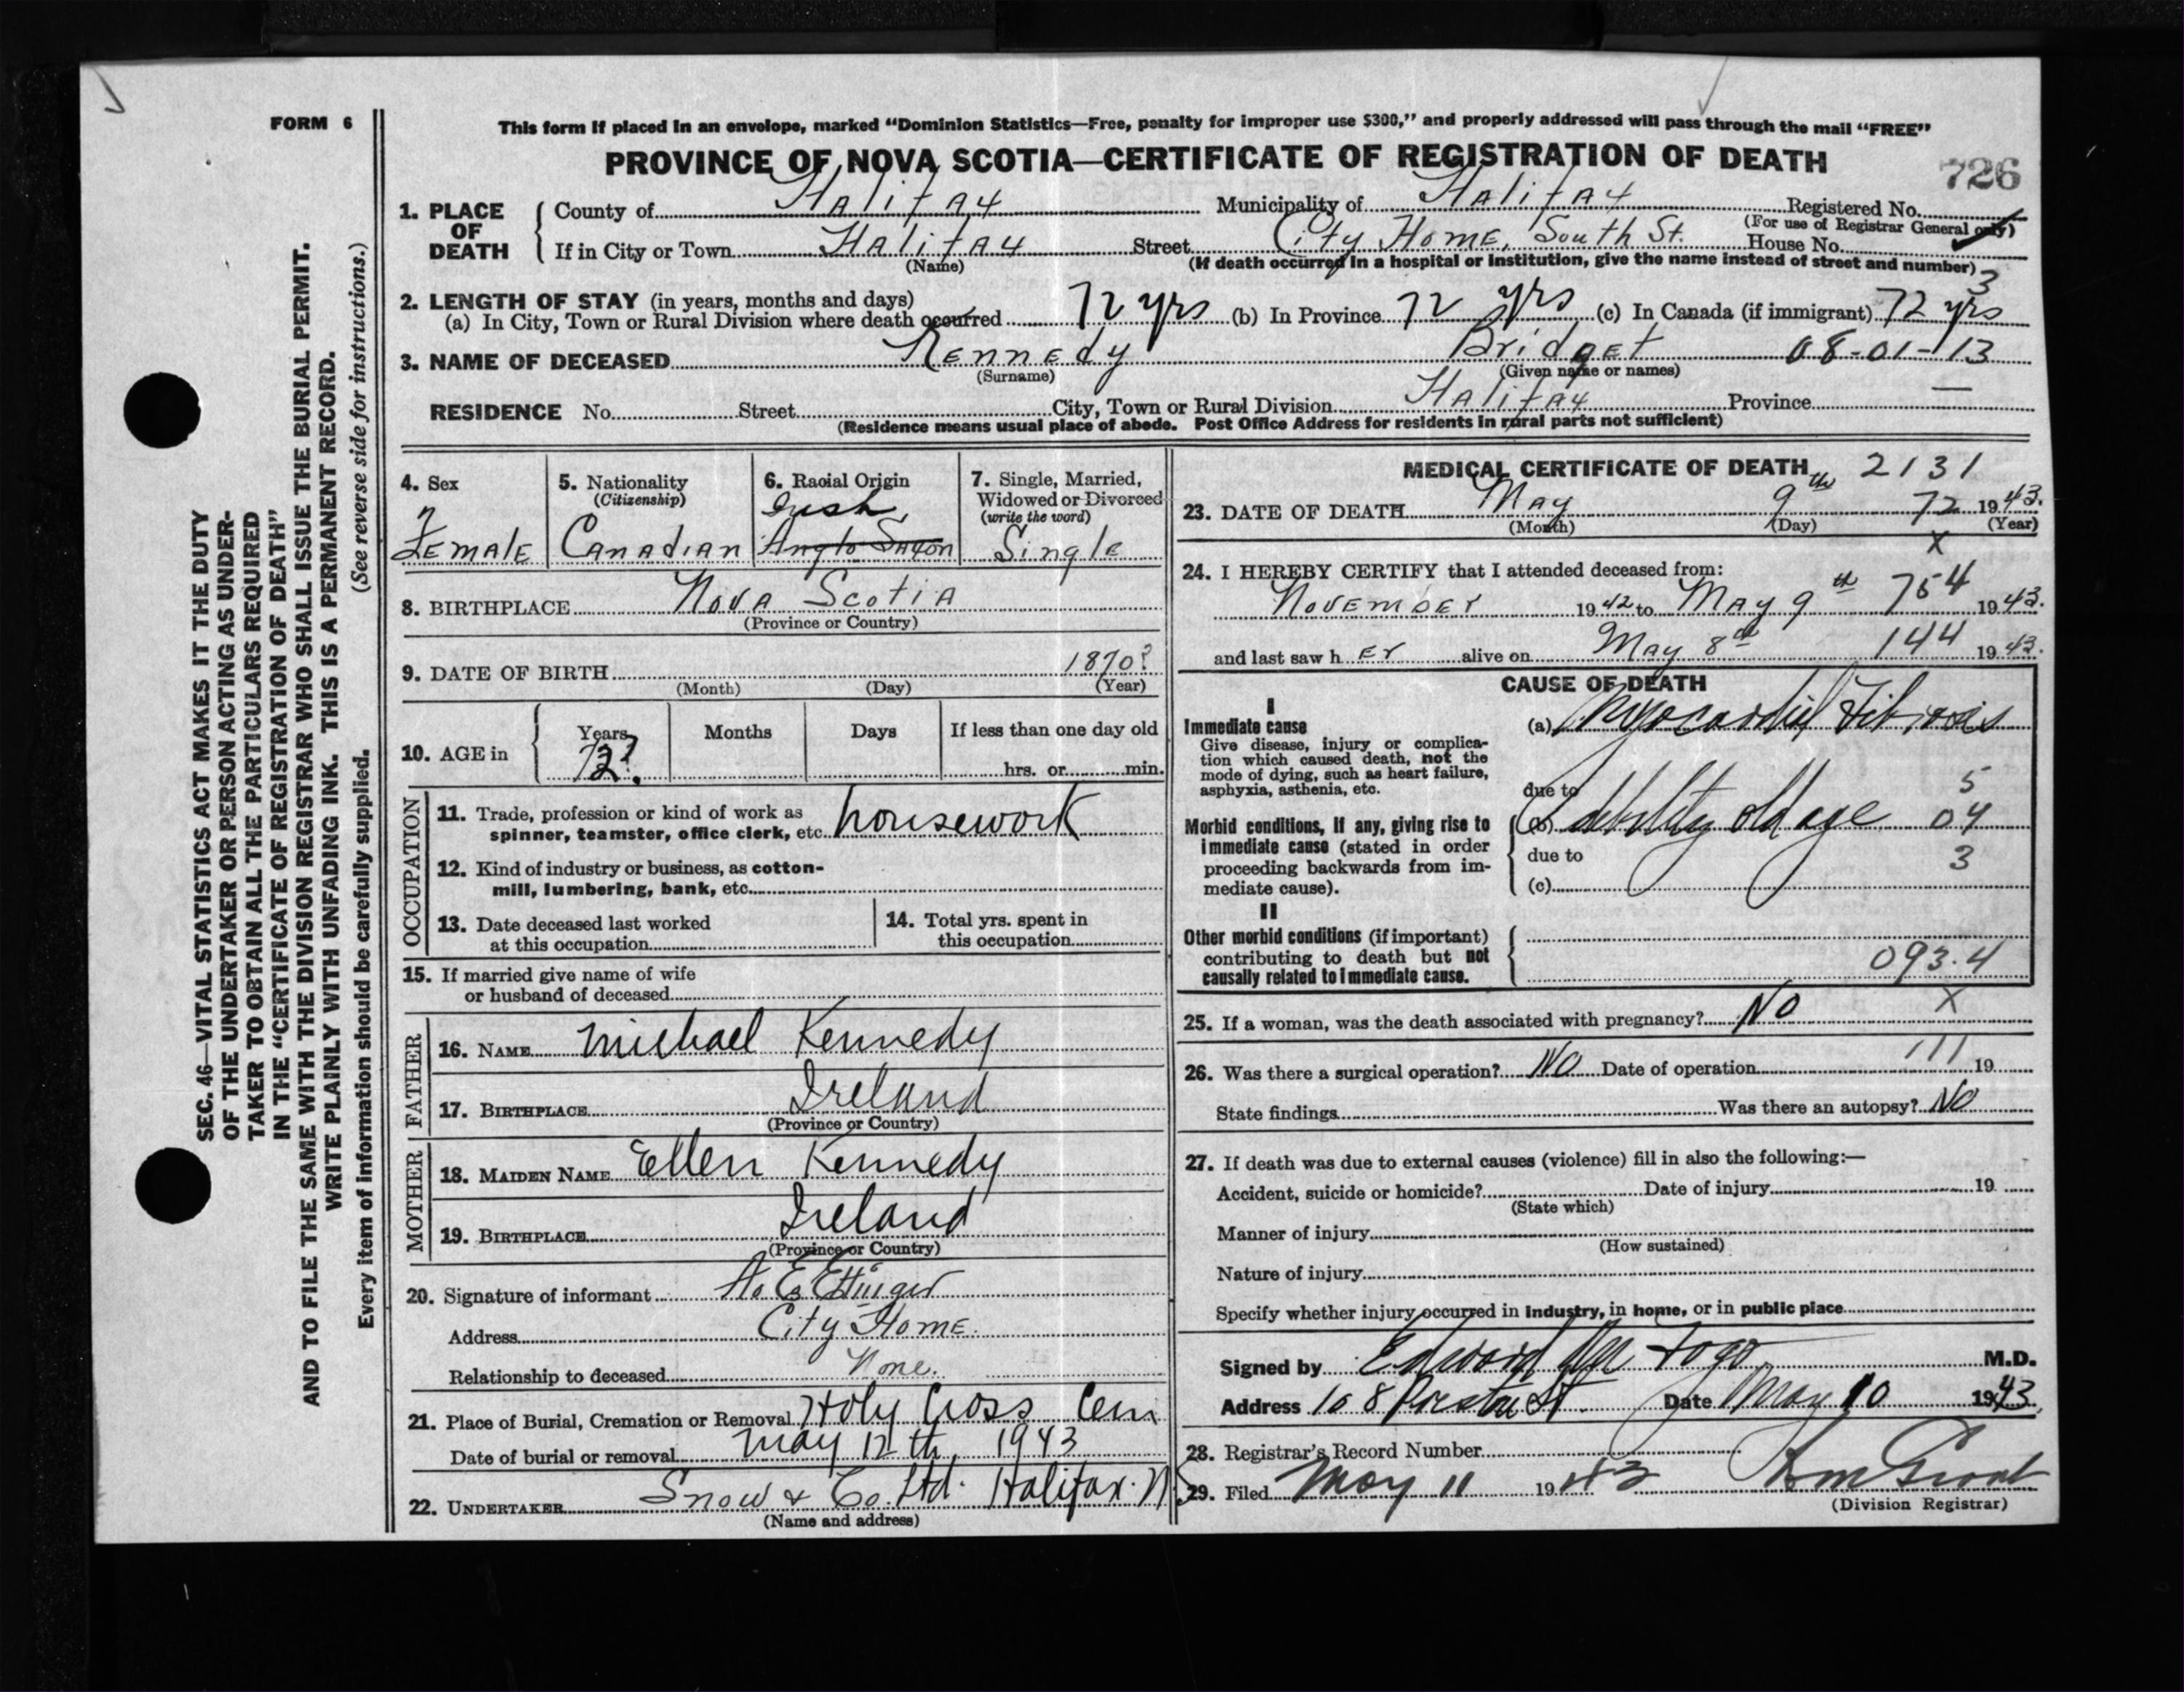 FORM 6
SEC. 46—VITAL STATISTICS ACT MAKES IT THE DUTY
OF THE UNDERTAKER OR PERSON ACTING AS UNDER-
TAKER TO OBTAIN ALL THE PARTICULARS REQUIRED
IN THE "CERTIFICATE OF REGISTRATION OF DEATH"
AND TO FILE THE SAME WITH THE DIVISION REGISTRAR WHO SHALL ISSUE THE BURIAL PERMIT.
WRITE PLAINLY WITH UNFADING INK. THIS IS A PERMANENT RECORD.
Every item of information should be carefully supplied. (See reverse side for instructions.)
This form if placed in an envelope, marked "Dominion Statistics—Free, penalty for improper use $300," and properly addressed will pass through the mail "FREE"
PROVINCE OF NOVA SCOTIA—CERTIFICATE OF REGISTRATION OF DEATH
726
1. PLACE OF DEATH County of Halifax Municipality of Halifax Registered No.
(For use of Registrar General only)
If in City or Town Halifax Street City Home, South St. House No.
(Name) (If death occurred in a hospital or institution, give the name instead of street and number)
3
2. LENGTH OF STAY (in years, months and days)
(a) In City, Town or Rural Division where death occurred 72 yrs (b) In Province 72 yrs (c) In Canada (if immigrant) 72 yrs
3. NAME OF DECEASED Kennedy Bridget 08-01-13
(Surname) (Given name or names)
RESIDENCE No. Street City, Town or Rural Division Halifax Province —
(Residence means usual place of abode. Post Office Address for residents in rural parts not sufficient)
4. Sex
Female
5. Nationality
(Citizenship)
Canadian
6. Racial Origin
Irish
Anglo Saxon
7. Single, Married,
Widowed or Divorced
(write the word)
Single
8. BIRTHPLACE Nova Scotia
(Province or Country)
9. DATE OF BIRTH 1870?
(Month) (Day) (Year)
10. AGE in Years Months Days If less than one day old
72? hrs. or min.
OCCUPATION
11. Trade, profession or kind of work as
spinner, teamster, office clerk, etc. housework
12. Kind of industry or business, as cotton-
mill, lumbering, bank, etc.
13. Date deceased last worked
at this occupation
14. Total yrs. spent in
this occupation
15. If married give name of wife
or husband of deceased
FATHER
16. NAME Michael Kennedy
17. BIRTHPLACE Ireland
(Province or Country)
MOTHER
18. MAIDEN NAME Ellen Kennedy
19. BIRTHPLACE Ireland
(Province or Country)
20. Signature of informant E Ettinger
Address City Home.
Relationship to deceased None.
21. Place of Burial, Cremation or Removal Holy Cross Cem
Date of burial or removal May 12th 1943
22. UNDERTAKER Snow & Co. Ltd. Halifax. N.S.
(Name and address)
MEDICAL CERTIFICATE OF DEATH 2131
23. DATE OF DEATH May 9th 72 1943.
(Month) (Day) (Year)
X
24. I HEREBY CERTIFY that I attended deceased from:
November 1942 to May 9th 754 1943.
and last saw her alive on May 8th 144 1943.
CAUSE OF DEATH
I
Immediate cause
Give disease, injury or complica-
tion which caused death, not the
mode of dying, such as heart failure,
asphyxia, asthenia, etc.
(a) Myocardial Fibrosis
due to 5
Morbid conditions, if any, giving rise to
immediate cause (stated in order
proceeding backwards from im-
mediate cause).
(b) debility old age 04
due to 3
(c)
II
Other morbid conditions (if important)
contributing to death but not
causally related to immediate cause.
093.4
X
25. If a woman, was the death associated with pregnancy? No
26. Was there a surgical operation? No Date of operation 111 19
State findings Was there an autopsy? No
27. If death was due to external causes (violence) fill in also the following:—
Accident, suicide or homicide? Date of injury 19
(State which)
Manner of injury
(How sustained)
Nature of injury
Specify whether injury occurred in industry, in home, or in public place
Signed by Edward Fogo M.D.
Address 168 St. Date May 10 1943
28. Registrar's Record Number
29. Filed May 11 1943
(Division Registrar)